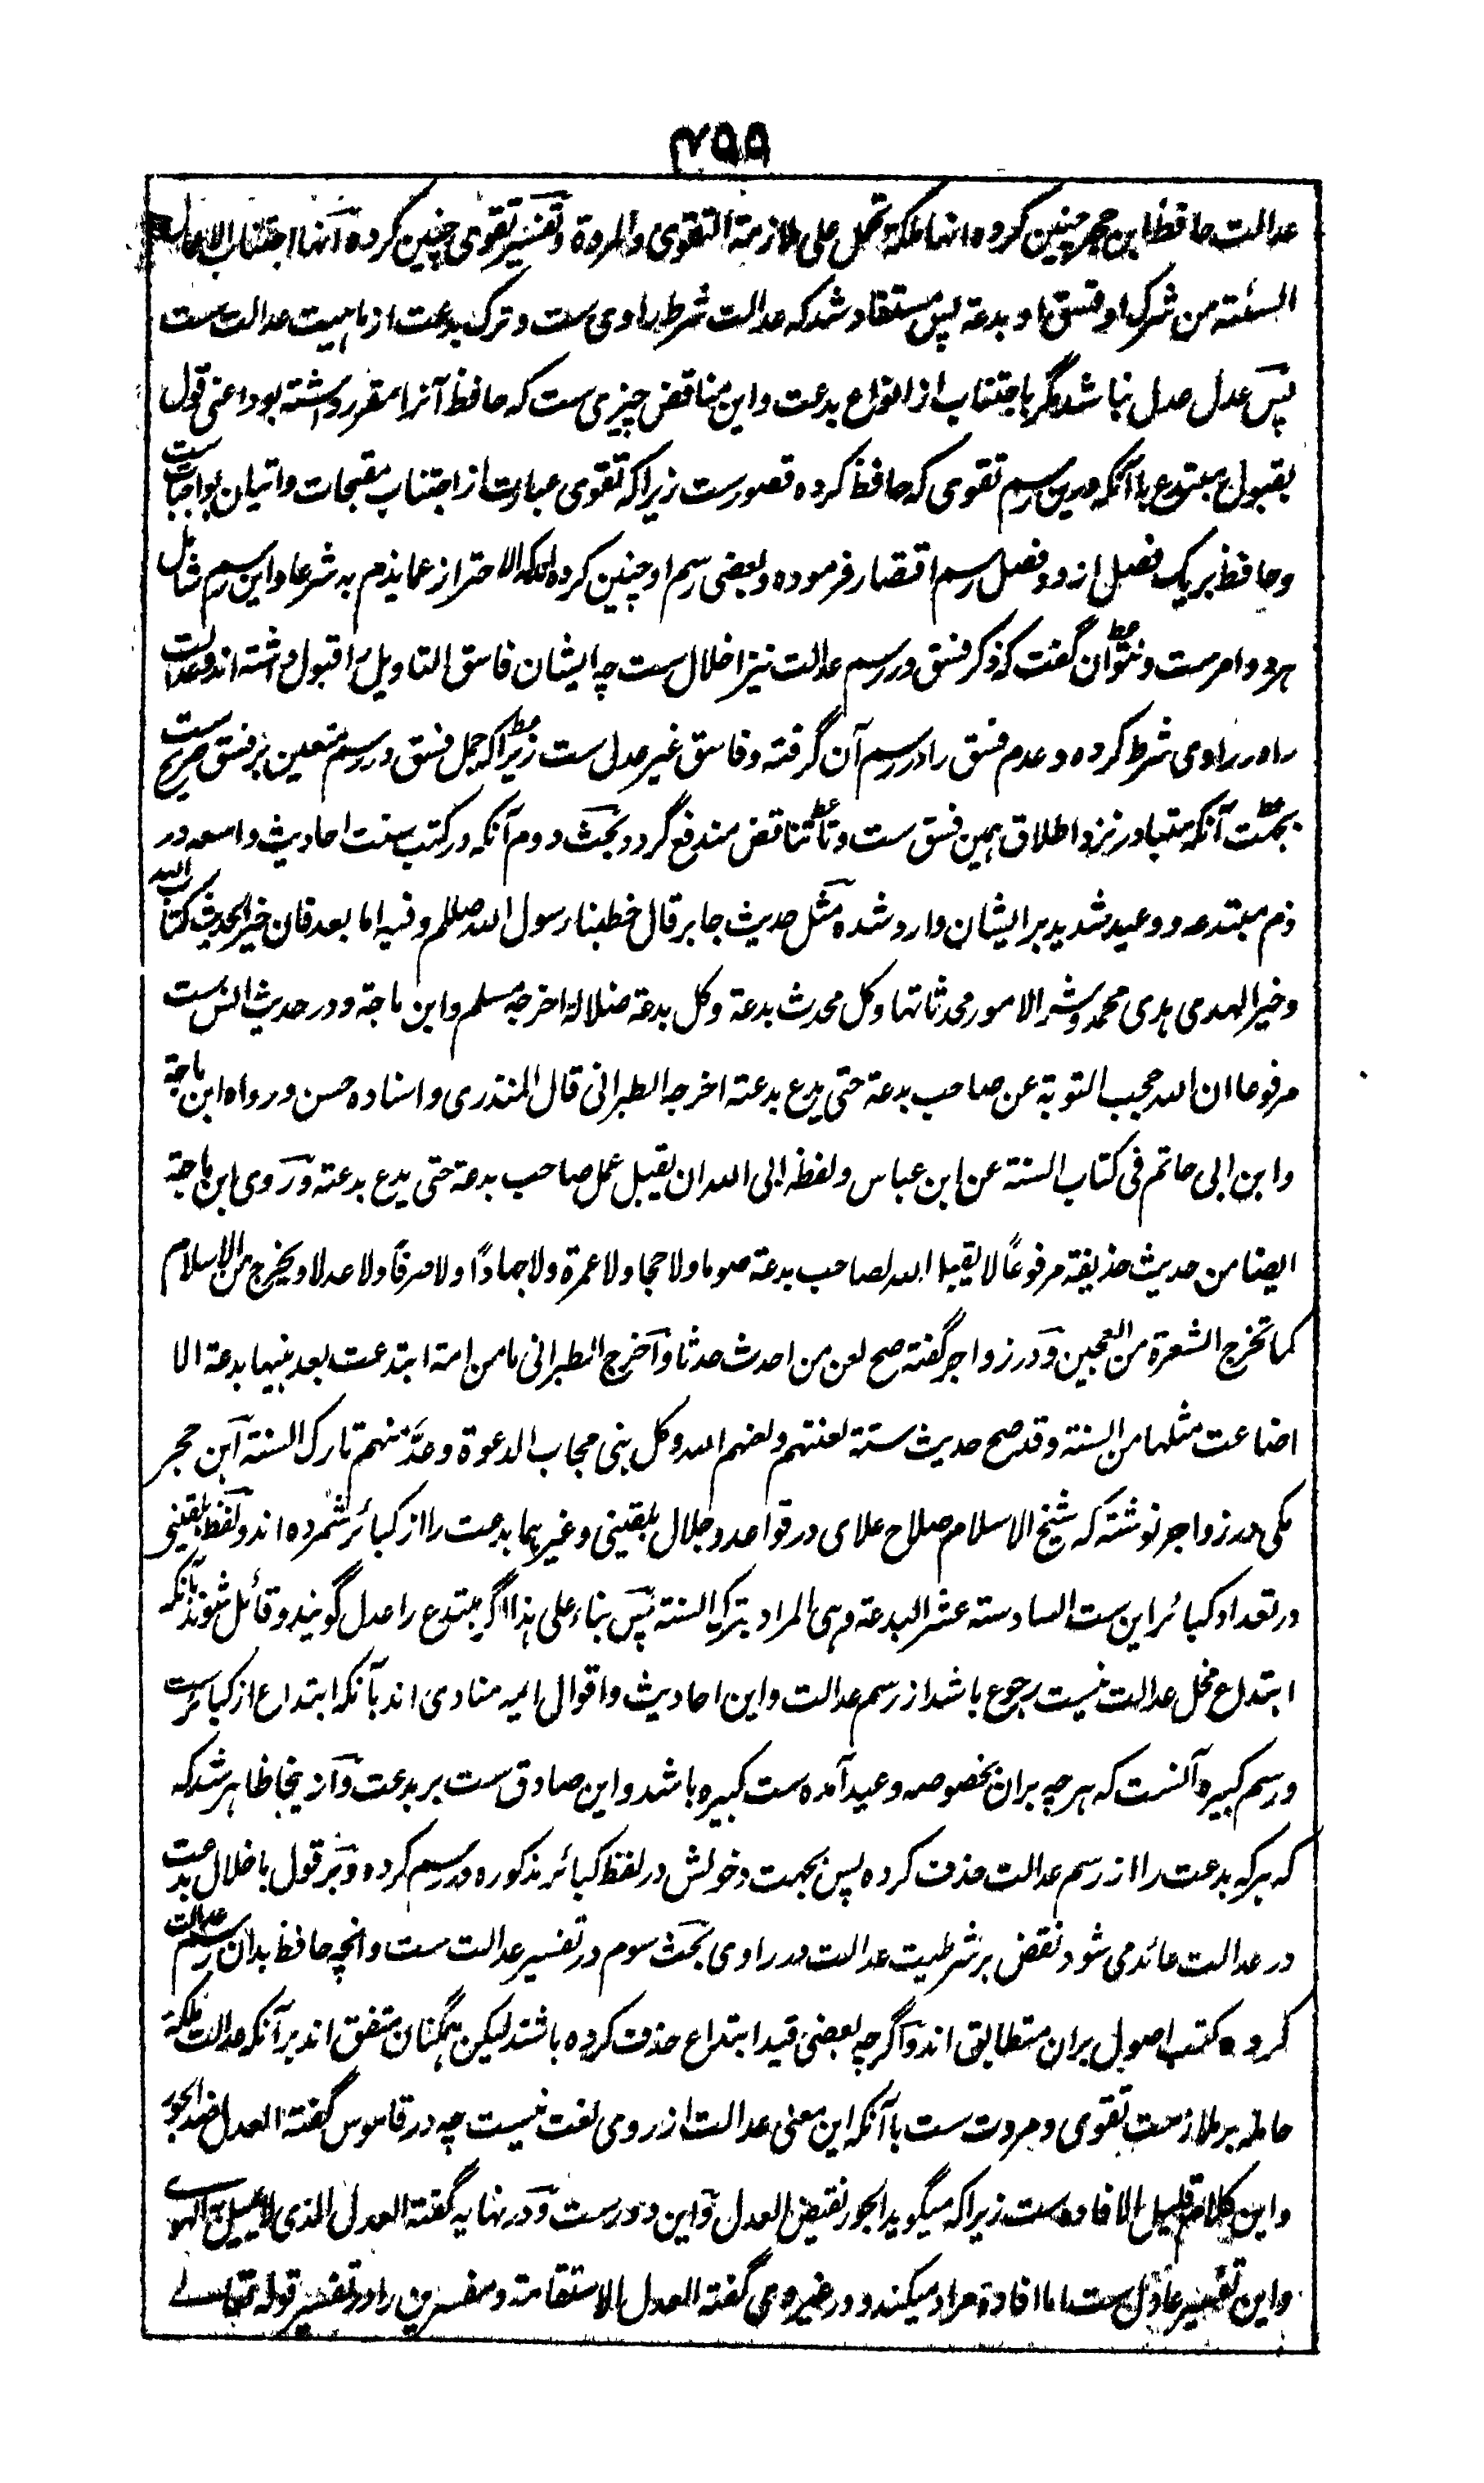 ۴۵۵
عدالت حافظ ابن حجر چنین کرده انها ملکة تحمل علی ملازمة التقوی والمروة وتفسیر تقوی چنین کرده انها اجتناب الاعمال
السیئة من شرک او فسق او بدعة پس مستفاد شد که عدالت شرط راوی ست وترک بدعت از ماهیت عدالت ست
پس عدل عدل نباشد مگر باجتناب از انواع بدعت واین مناقض چیزی ست که حافظ آنرا مقرر داشته بود اعنی قول
بقبول مبتدع با آنکه درین رسم تقوی که حافظ کرده قصورست زیراکه تقوی عبارت از اجتناب مقبحات واتیان بواجبات ست
وحافظ بریک فصل از دو فصل رسم اقتصار فرموده وبعضی رسم او چنین کرده اند که الاحتراز عما یذم به شرعا واین رسم شامل
هر دو امرست ونتوان گفت که ذکر فسق در رسم عدالت نیز اخلال ست چه ایشان فاسق التاویل را قبول داشته اند وعدالت
را در راوی شرط کرده وعدم فسق را در رسم آن گرفته وفاسق غیر عدل ست زیراکه حمل فسق در رسم متعین بر فسق صریح ست
بجهت آنکه متبادر نزد اطلاق همین فسق ست وتا تناقض مندفع گردد بحث دوم آنکه در کتب سنت احادیث واسعه در
ذم مبتدعه ووعید شدید بر ایشان وارد شده مثل حدیث جابر قال خطبنا رسول الله صللم وفیه اما بعد فان خیر الحدیث کتاب الله
وخیر الهدی هدی محمد وشر الامور محدثاتها وکل محدث بدعة وکل بدعة ضلالة اخرجه مسلم وابن ماجة ودر حدیث انس ست
مرفوعا ان الله حجب التوبة عن صاحب بدعة حتی یدع بدعته اخرجه الطبرانی قال المنذری واسناده حسن ورواه ابن ماجة
وابن ابی حاتم فی کتاب السنة عن ابن عباس ولفظه ابی الله ان یقبل عمل صاحب بدعة حتی یدع بدعته وروی ابن ماجة
ایضا من حدیث حذیفة مرفوعاً لا یقبل الله لصاحب بدعة صوما ولا حجا ولا عمرة ولا جهاداً ولا صرفاً ولا عدلا ویخرج من الاسلام
کما تخرج الشعرة من العجین ودر زواجر گفته صح لعن من احدث حدثا واخرج الطبرانی ما من امة ابتدعت بعد نبیها بدعة الا
اضاعت مثلها من السنة وقد صح حدیث ستة لعنتهم ولعنهم الله وکل نبی مجاب الدعوة وعدّ منهم تارک السنة ابن حجر
مکی در زواجر نوشته که شیخ الاسلام صلاح علای در قواعد وجلال بلقینی وغیرهما بدعت را از کبائر شمرده اند ولفظ بلقینی
در تعداد کبائر این ست السادسة عشر البدعة وهی المراد بترک السنة پس بناء علی هذا اگر مبتدع را عدل گویند وقائل شوند بآنکه
ابتداع مخل عدالت نیست رجوع باشد از رسم عدالت واین احادیث واقوال ایمه منادی اند بآنکه ابتداع از کبائرست
ورسم کبیره آنست که هر چه بران بخصوصه وعید آمده ست کبیره باشد واین صادق ست بر بدعت وازینجا ظاهر شد که
که هرکه بدعت را از رسم عدالت حذف کرده پس بجهت دخولش در لفظ کبائر مذکوره در رسم کرده وبر قول باخلال بدعت
در عدالت عائد می شود نقض بر شرطیت عدالت در راوی بحث سوم در تفسیر عدالت ست وانچه حافظ بدان رسم عدالت
کرده کتب اصول بران متطابق اند واگرچه بعضی قید ابتداع حذف کرده باشند لیکن همگنان متفق اند بر آنکه عدالت ملکة
حامله بر ملازمت تقوی ومروت ست با آنکه این معنی عدالت از روی لغت نیست چه در قاموس گفته العدل ضد الجور
واین کلام قلیل الافاده ست زیراکه میگوید الجور نقیض العدل واین دورست ودر نهایه گفته العدل الذی لا یمیل به الهوی
واین تفسیر عادل ست اما افادهٔ مراد میکند ودر غیر وی گفته العدل الاستقامة ومفسرین را در تفسیر قوله تعالے